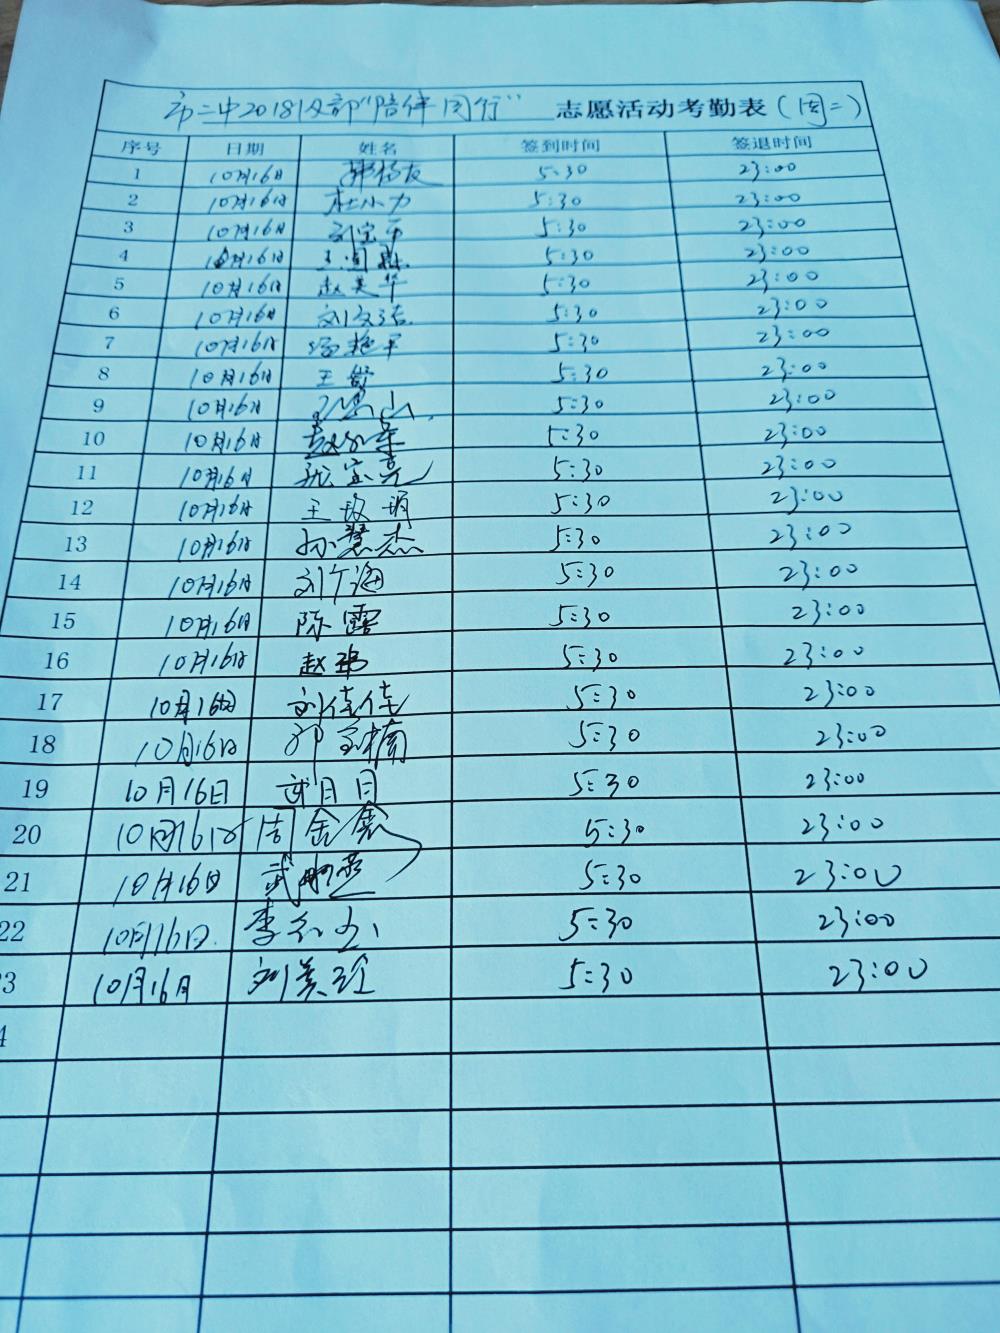 市二中2018级部“陪伴同行” 志愿活动考勤表(周二)
序号 日期 姓名 签到时间 签退时间
1 10月16日 5:30 23:00
2 10月16日 杜小力 5:30 23:00
3 10月16日 刘宝平 5:30 23:00
4 10月16日 5:30 23:00
5 10月16日 赵美华 5:30 23:00
6 10月16日 刘文洁 5:30 23:00
7 10月16日 5:30 23:00
8 10月16日 王 5:30 23:00
9 10月16日 5:30 23:00
10 10月16日 5:30 23:00
11 10月16日 张宝亮 5:30 23:00
12 10月16日 王玫玥 5:30 23:00
13 10月16日 孙慧杰 5:30 23:00
14 10月16日 刘广海 5:30 23:00
15 10月16日 陈露 5:30 23:00
16 10月16日 赵玮 5:30 23:00
17 10月16日 刘佳佳 5:30 23:00
18 10月16日 5:30 23:00
19 10月16日 武月月 5:30 23:00
20 10月16日 周金 5:30 23:00
21 10月16日 武 5:30 23:00
22 10月16日 李 5:30 23:00
3 10月16日 刘美玲 5:30 23:00
4